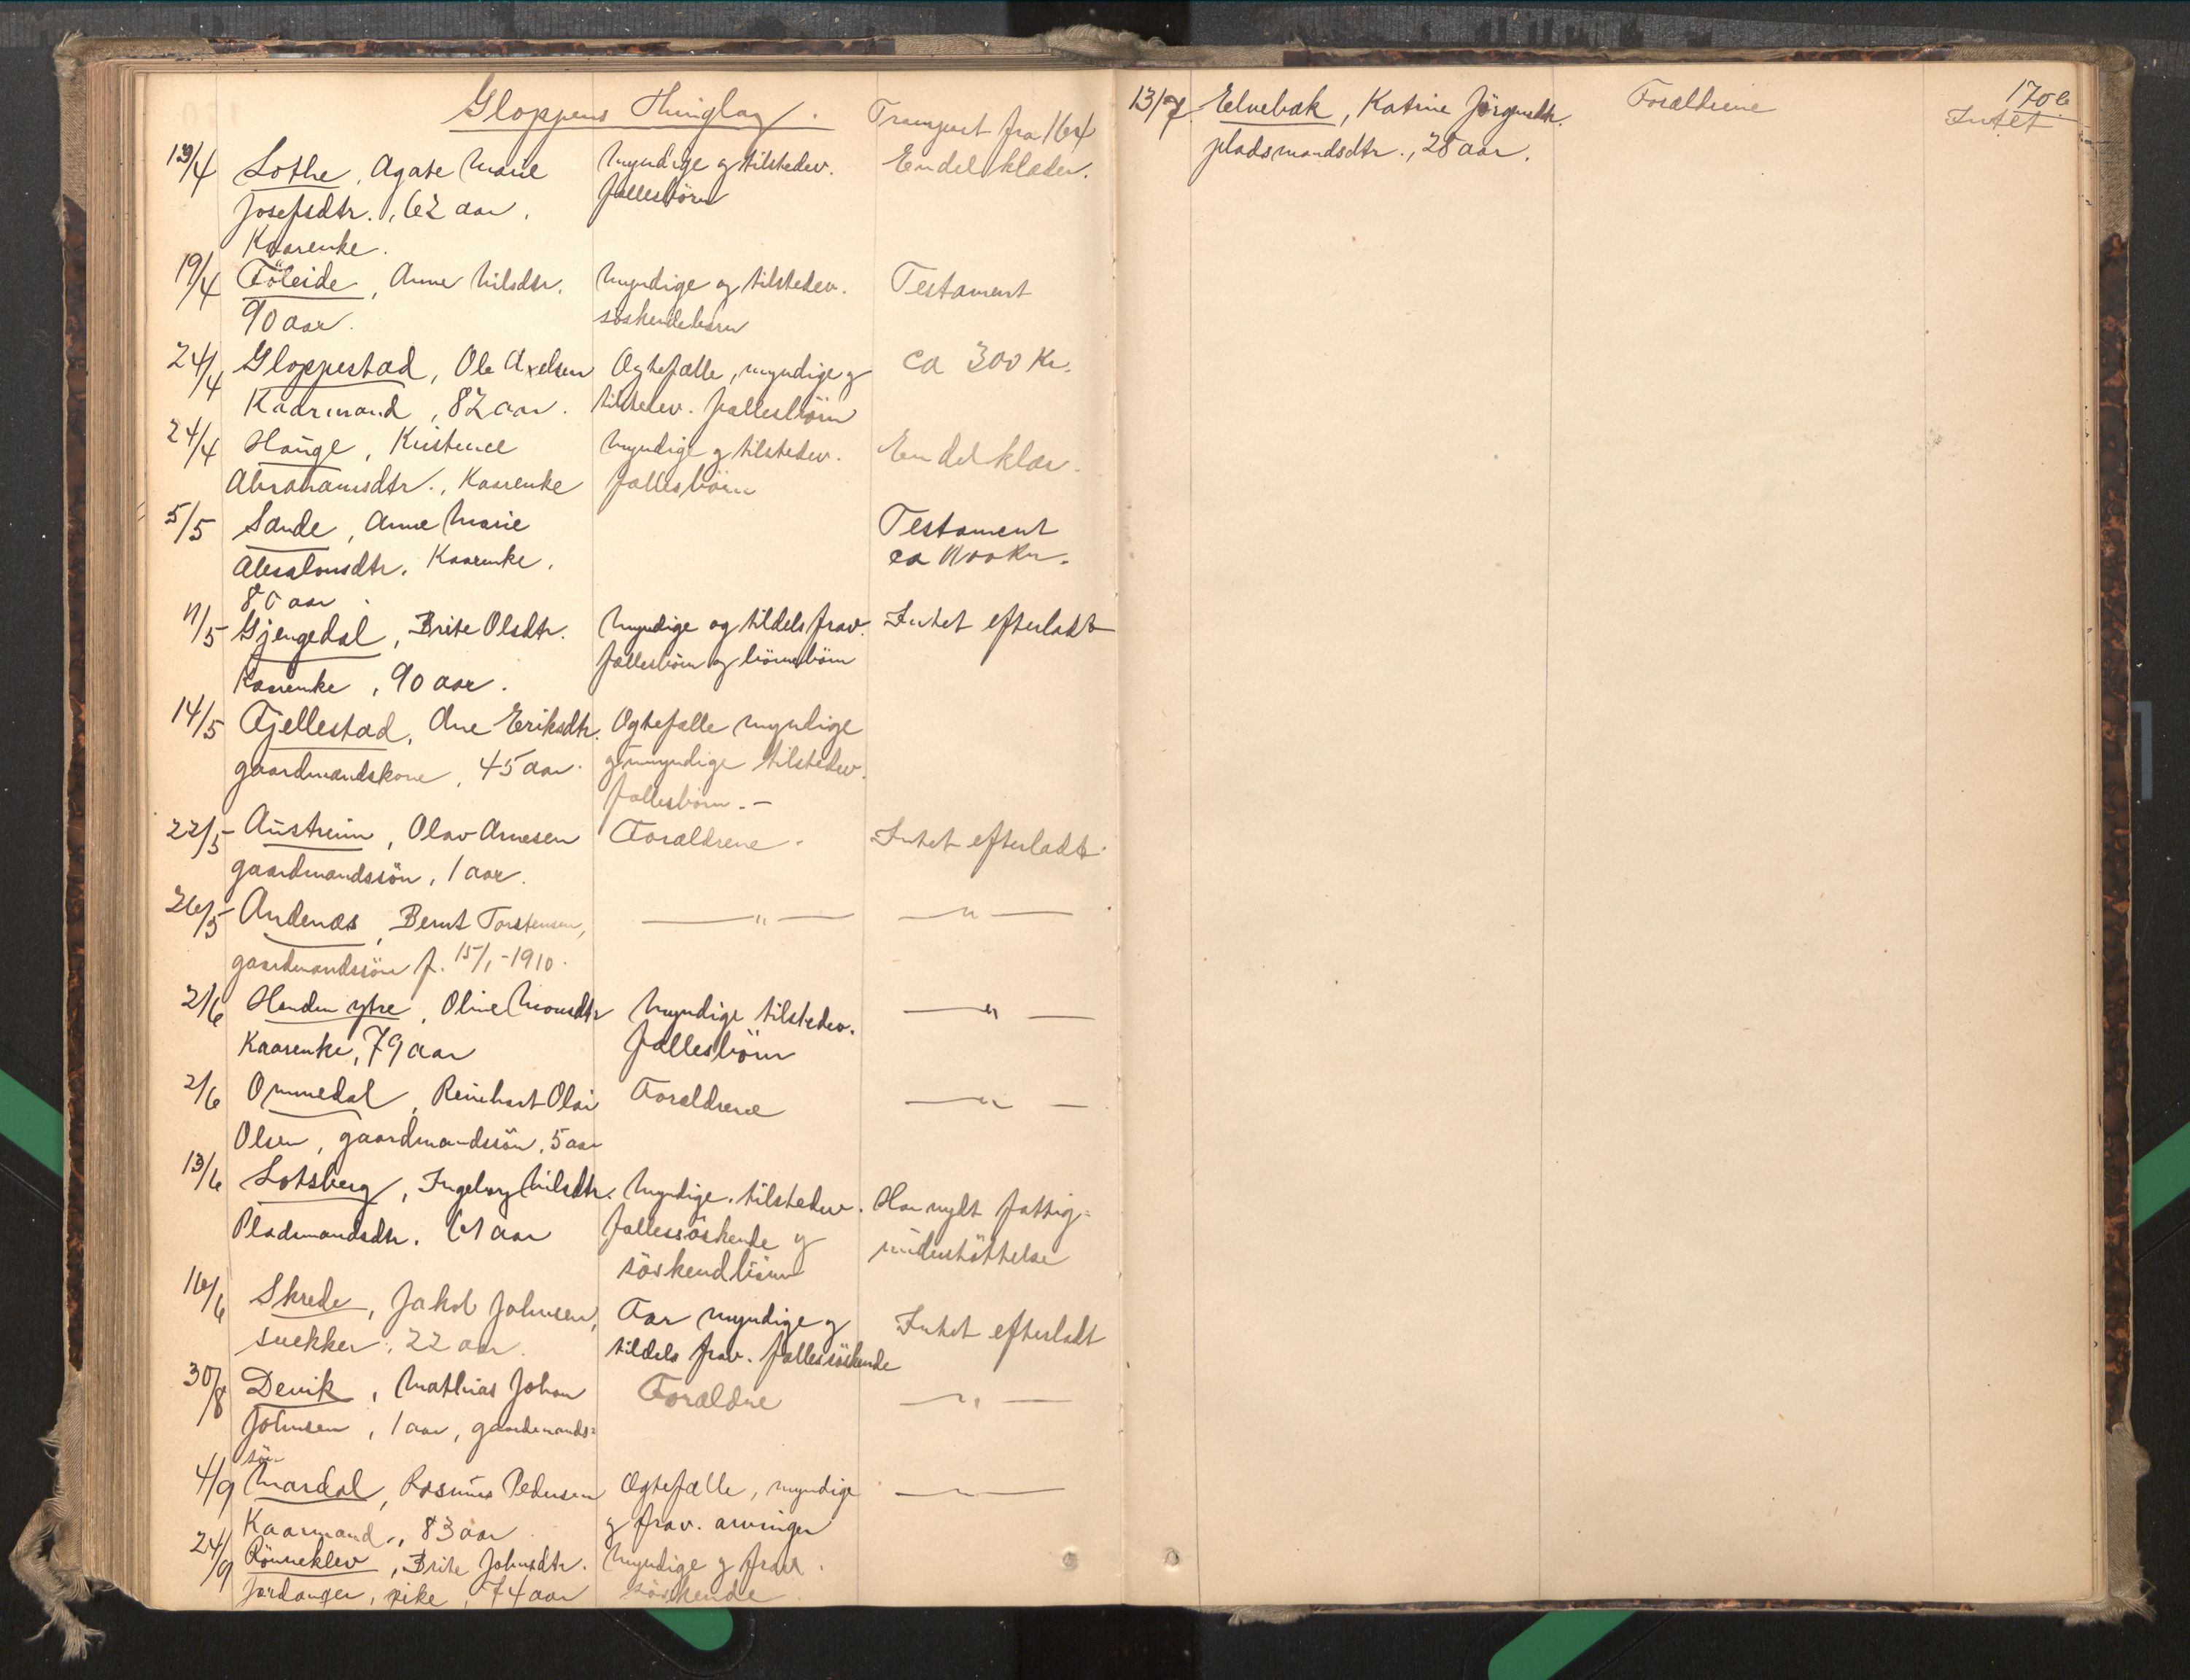 Gloppens Thinglag.
Transport fra 164
13/4 Lothe, Agate Marie myndige og tilstedev. En del klæder.
Josefsdtr., 62 aar, fællesbörn
Kaarenke.
19/4 Föleide, Anne Nilsdtr. myndige og tilstedev. Testament
90 aar. söskendebörn
24/4 Gloppestad, Ole Axelsen Ægtefælle, myndige og ca 300 Kr.
Kaarmand, 82 aar. tilstedev. fællesbörn
24/4 Hauge, Kristence myndige og tilstedev. En del klær.
Abrahamsdtr., Kaarenke fællesbörn
5/5 Sande, Anne Marie Testament
Absalonsdtr. Kaarenke, ca Kr.
80 aar.
11/5 Gjengedal, Brite Olsdtr. Myndige og tildels frav. Intet efterladt
Kaarenke, 90 aar. fællesbörn og börnebörn
14/5 Fjellestad, Ane Eriksdtr. Ægtefælle myndige
gaardmandskone, 45 aar. og umyndige tilstedev.
fællesbörn.-
22/5 Austreim, Olav Arnesen Forældrene. Intet efterladt.
gaardmandssön, 1 aar.
26/5 Andenæs, Bernt Torstensen, — " — — " —
gaardmandssön f. 15/1-1910.
2/6 Henden ytre, Oline Monsdtr Myndige tilstedev. — " —
Kaarenke, 79 aar fællesbörn
2/6 Ommedal, Reinhart Olai Forældrene — " —
Olsen, gaardmandssön, 5 aar
13/6 Lotsberg, Ingeborg Nilsdtr. Myndige. tilstedev. Har nydt fattig=
Pladsmandsdtr. 61 aar fællessöskende og understöttelse
söskendbörn
16/6 Skrede, Jakob Johnsen, Far myndige og Intet efterladt
snekker, 22 aar. tildels frav. fællessöskende
30/8 Devik, Mathias Johan Forældre — " —
Johnsen, 1 aar, gaardmands=
sön
4/9 Mardal, Rasmus Pedersen Ægtefælle, myndige — " —
Kaarmand., 83 aar. og frav. arvinger
24/9 Rönneklev, Brite Johnsdtr. Myndige og frav.
Jordanger, pike, 74 aar söskende.
170 b
13/7 Elvebak, Katrine Jörgensdtr. Forældrene Intet
pladsmandsdtr., 28 aar.